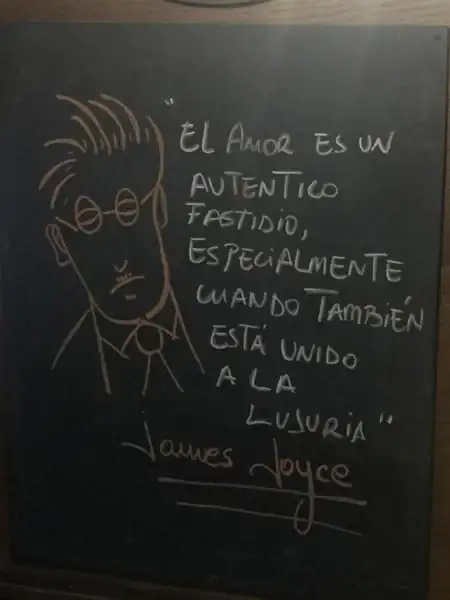 "EL AMOR ES UN
AUTENTICO
FASTIDIO,
ESPECIALMENTE
CUANDO TAMBIÉN
ESTÁ UNIDO
A LA
LUJURIA"
James Joyce